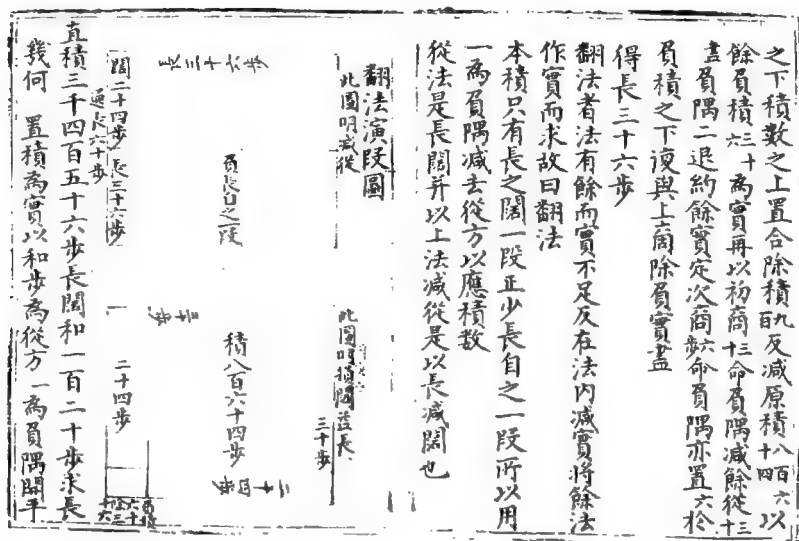 之下積數之上置合除積九百反減原積八百六十四以
餘負積三十六為實再以初商三十命負隅減餘從三十
盡負隅二退約餘實定次商六步命負隅亦置六於
負積之下復與上商除負實盡
得長三十六步
翻法者法有餘而實不足反在法內減實將餘法
作實而求故曰翻法
本積只有長之闊一段正少長自之一段所以用
一為負隅減去從方以應積數
從法是長闊并以上法減從是以長減闊也
翻法演段圖
此圖明減從
長三十六步
負長自之一段
闊二十四步 長三十六步
通長六十步
此圖明損闊益長
三十步
三十步
積八百六十四步
二十四步
二十四步
直積三千四百五十六步長闊和一百二十步求長
幾何 置積為實以和步為從方一為負隅開平